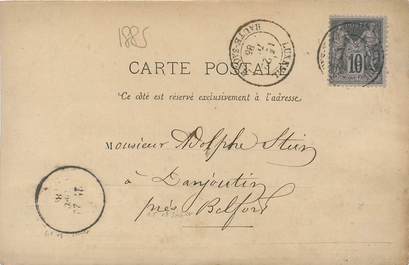 1885
CARTE POSTALE
Ce côté est réservé exclusivement à l'adresse.
Monsieur Adolphe Stein
à Danjoutin
près Belfort
10